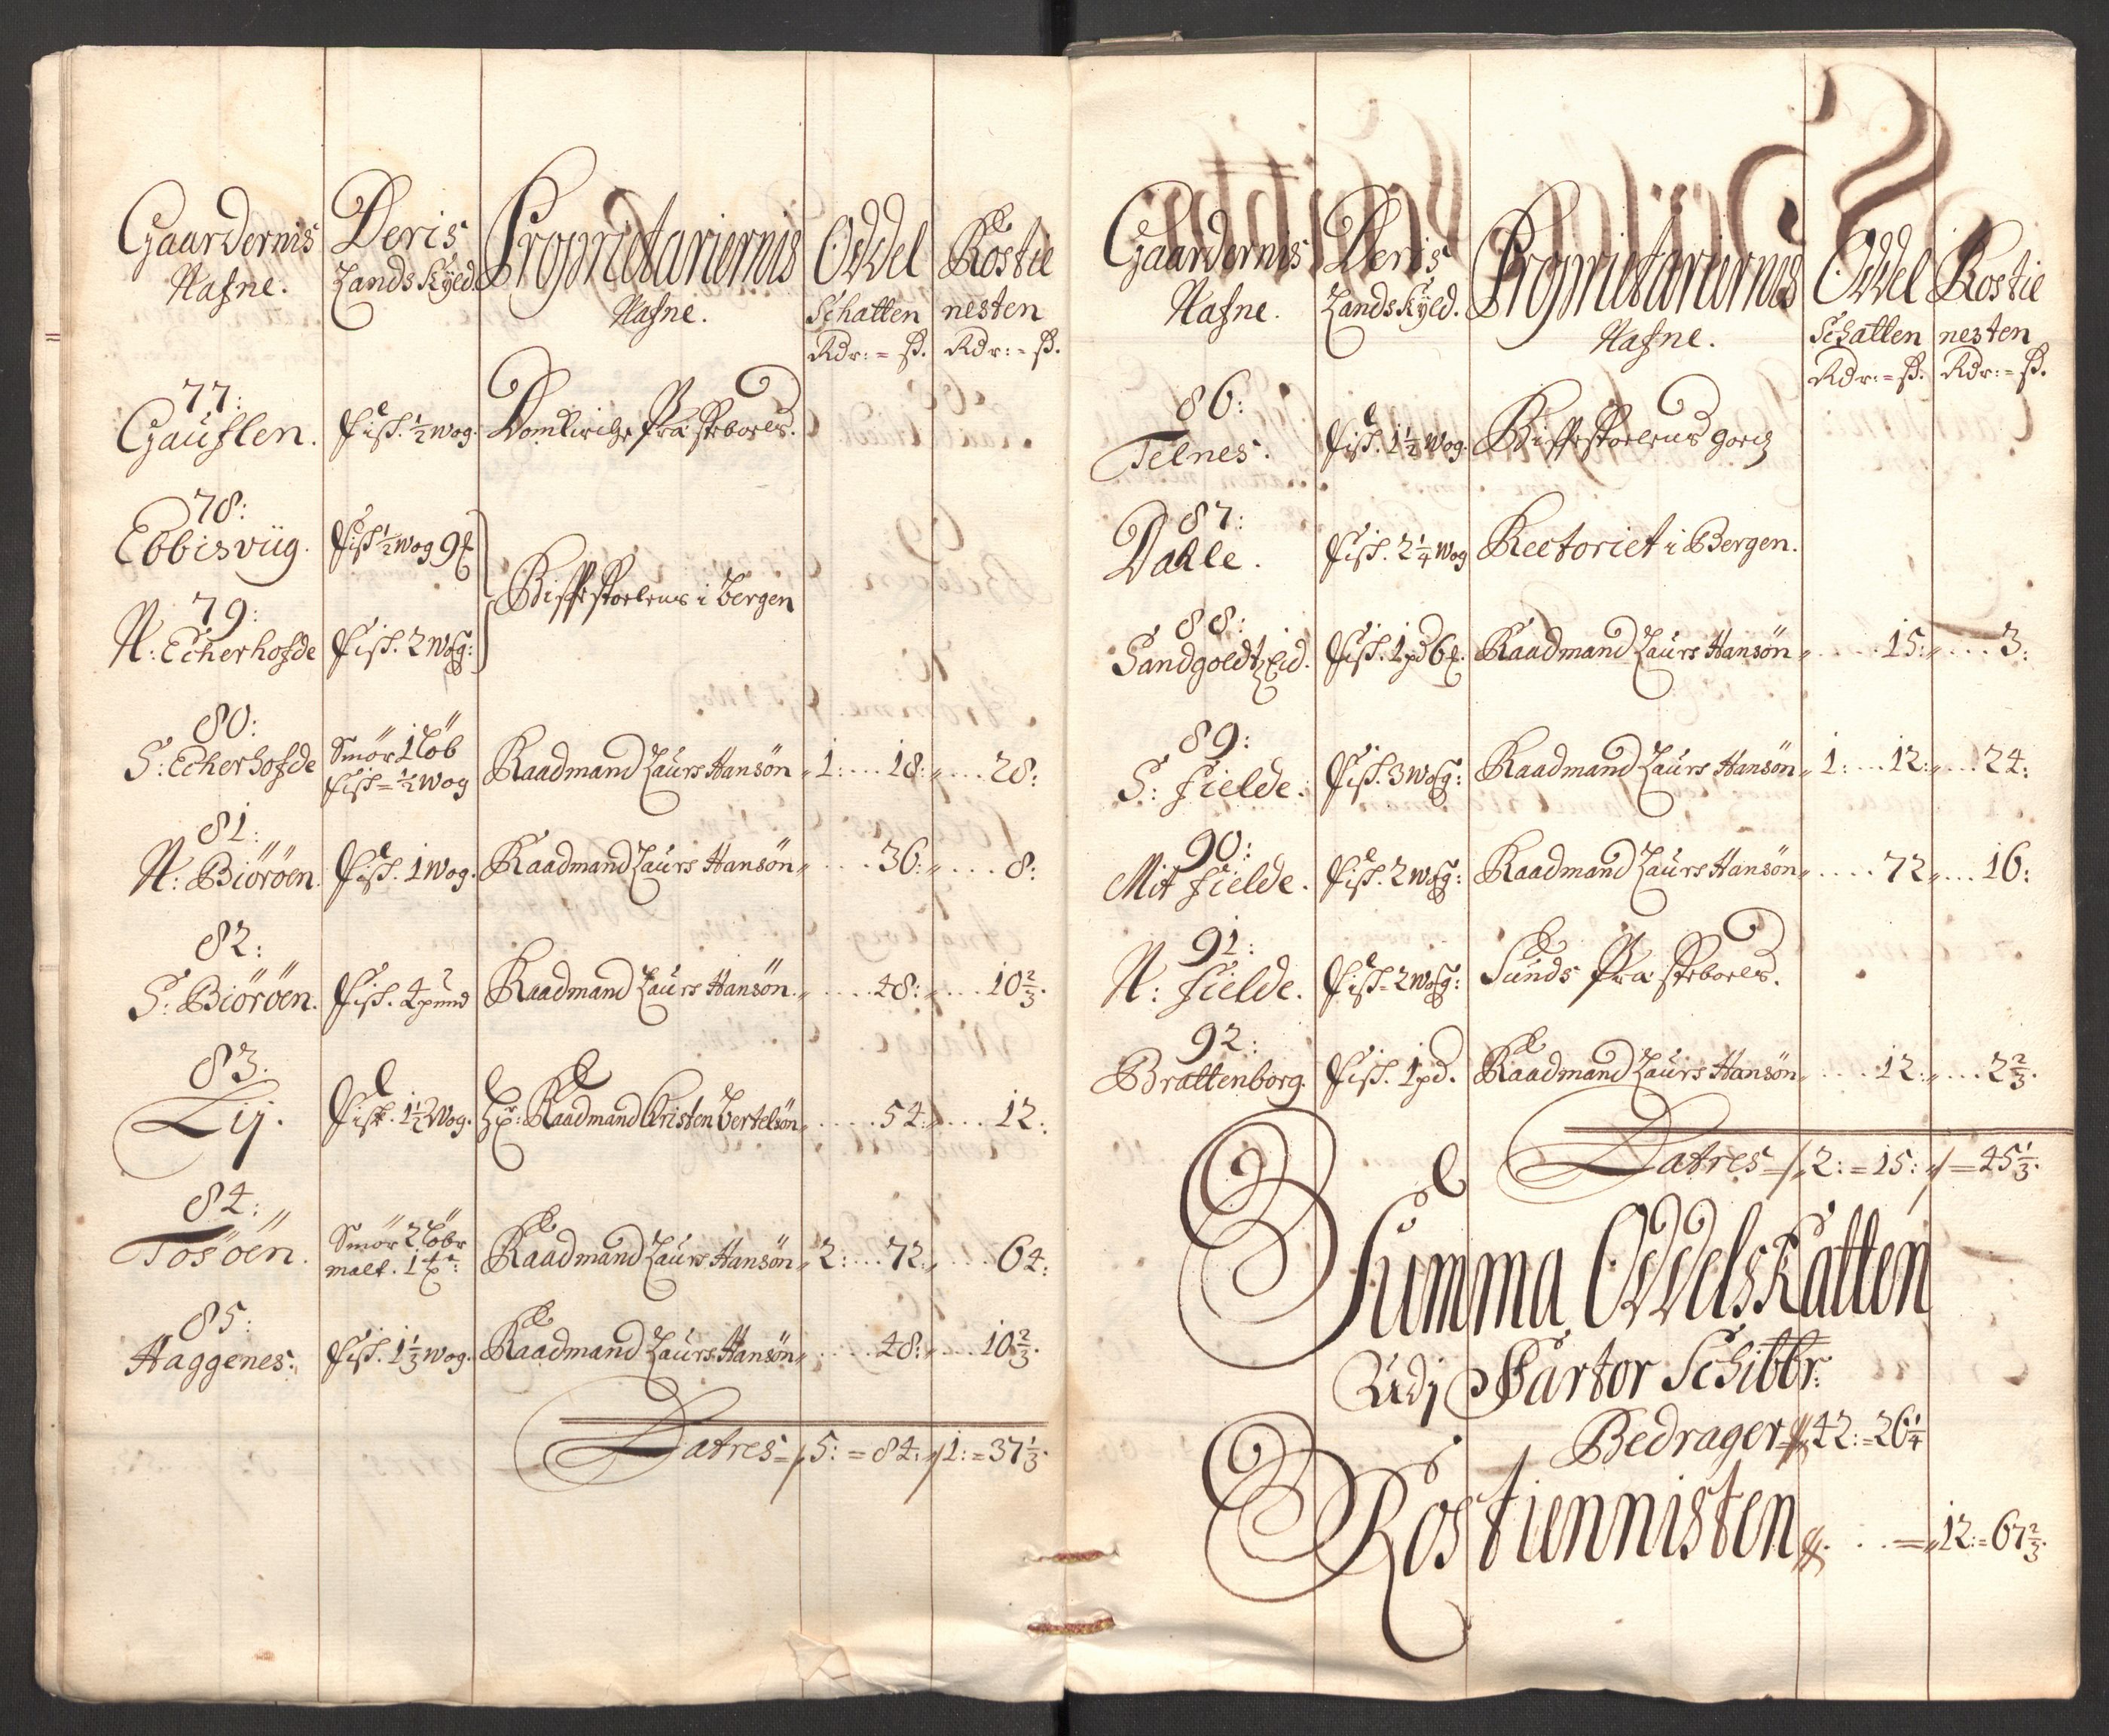 Gaardernis Deris Proprietariernis Oddel Rostie
Nafne. Landskÿld. Nafne. Schatten nesten
Rdr: = ß. Rdr: = ß.
77:
Gauflen. Fisk. ½ wog. Domkirche Præsteboels.
78:
Ebbisviig. Fisk ½ wog 9 £
Bisspestoelens i bergen
79:
N: Echerhofde Fisk. 2 Wog:
80:
S: Echerhofde Smör 1 löb
Fisk = ½ Wog Raadmand Laurs Hansön 1: . . . 18: . . . 28:
81:
N: Biöröen. Fisk. 1 Wog. Raadmand Laurs Hansön . . . 36: . . . 8:
82:
S: Biöröen. Fisk. 4 pund Raadmand Laurs Hansön. . . . 48: . . . 10⅔.
83.
Lij. Fisk. 1½ Wog. Hr: Raadmand Cristen Bertelsön . . . 54: . . . 12:
84:
Tösöen. Smör 2 löbr
malt. 1 tr: Raadmand Laurs Hansön 2: . . . 72: . . . 64:
85:
Haggenes. Fisk. 1⅓ wog. Raadmand Laurs Hansön . . . 48: . . . 10⅔.
Latres = 5: = 84: 1: = 37⅓.
Gaardernis Deris Proprietariernis Oddel Rostie
Nafne. Landskÿld. Nafne. Schatten nesten
Rdr: = ß. Rdr: = ß.
86:
Telnes. Fisk. 1½ Wog. Bisspestoelens goedz
87:
Dahle. Fisk. 2¼ Wog Rectoriet i Bergen.
88:
Sandgoldtz Eid. Fisk. 1 pd 6 £. Raadmand Laurs Hansön . . . 15: . . . 3:
89:
S: Fielde. Fisk. 3 Wog: Raadmand Laurs Hansön 1: . . . 12: . . . 24:
90:
Mit Fielde. Fisk. 2 Wog: Raadmand Laurs Hansön . . . 72 . . . 16:
91:
N: Fielde. Fisk = 2 Wog: Sunds Præsteboels.
92:
Brattenborg. Fisk. 1 pd. Raadmand Laurs Hansön . . . 12: . . . 2⅔.
Latres = 2: = 15: = 45⅓.
Summa Oddelskatten
Udj Sartor Schibbr:
Bedrager 42: = 26¼
Rostiennisten . . . = 12: = 67⅔.